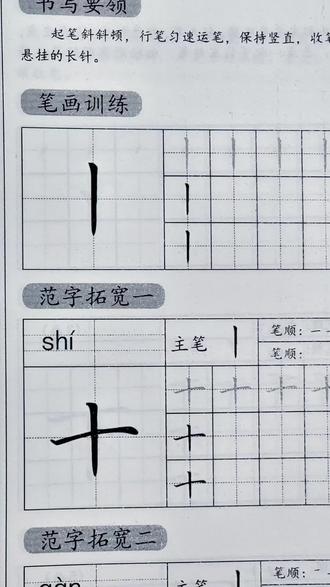 书写要领
起笔斜斜顿，行笔匀速运笔，保持竖直，收笔
悬挂的长针。
笔画训练
丨
范字拓宽一
shí 主笔 丨 笔顺：一
笔顺：
十 十 十 十
十
十
范字拓宽二
gàn 主笔 丨 笔顺：